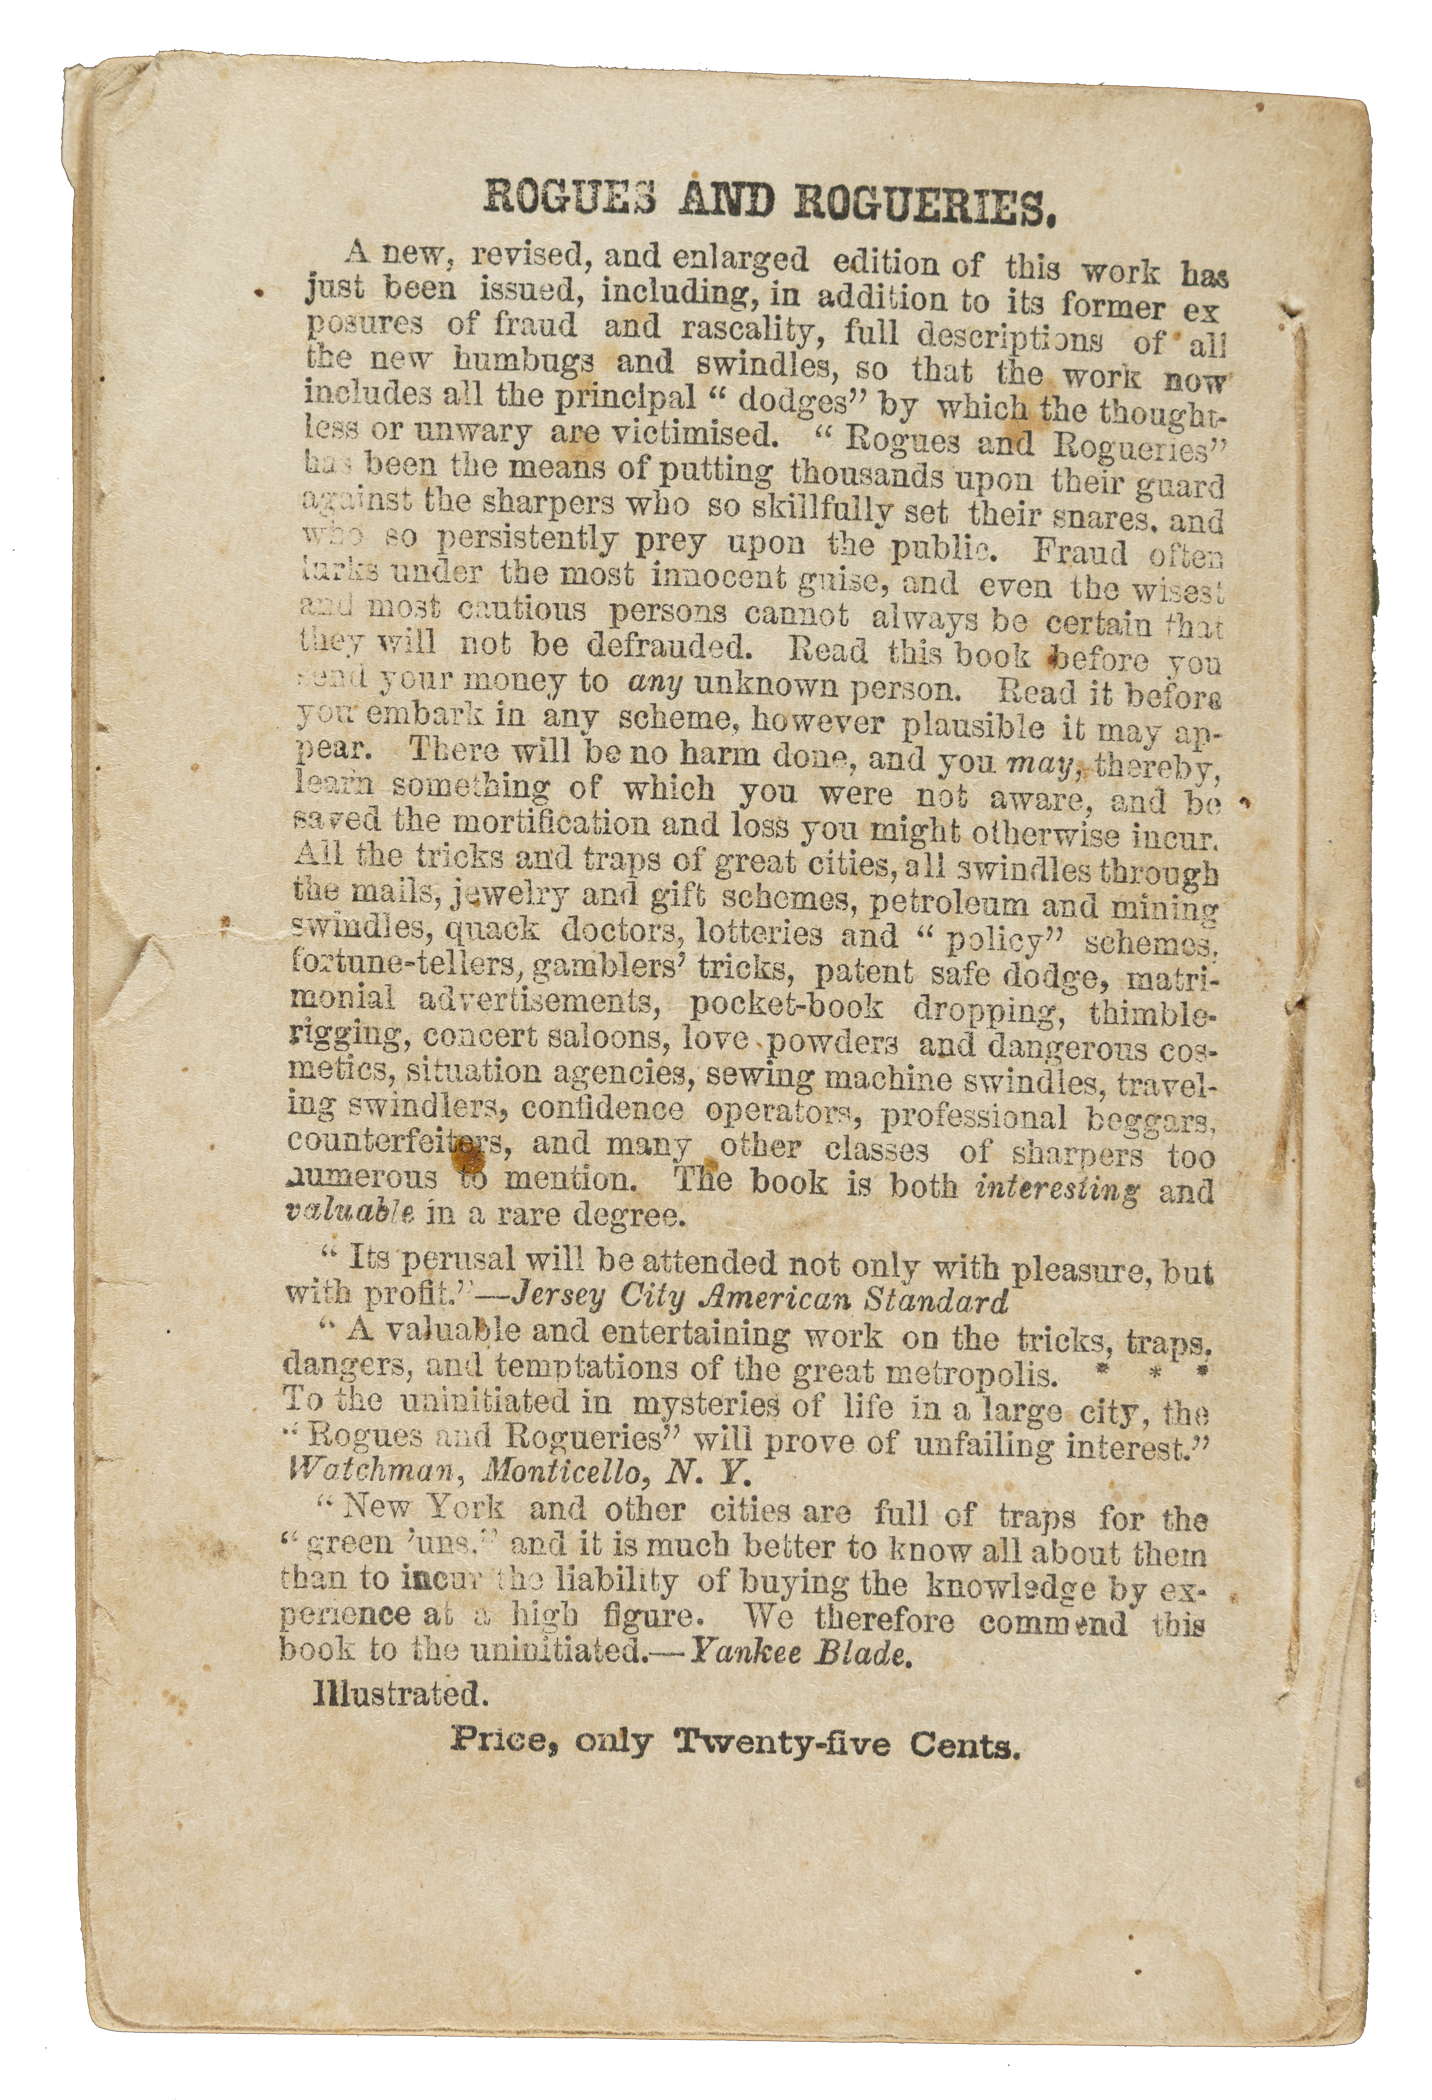 ROGUES AND ROGUERIES.
A new, revised, and enlarged edition of this work has
just been issued, including, in addition to its former ex
posures of fraud and rascality, full descriptions of all
the new humbugs and swindles, so that the work now
includes all the principal “ dodges” by which the thought-
less or unwary are victimised. “ Rogues and Rogueries”
has been the means of putting thousands upon their guard
against the sharpers who so skillfully set their snares, and
who so persistently prey upon the public. Fraud often
lurks under the most innocent guise, and even the wisest
and most cautious persons cannot always be certain that
they will not be defrauded. Read this book before you
send your money to any unknown person. Read it before
you embark in any scheme, however plausible it may ap-
pear. There will be no harm done, and you may, thereby,
learn something of which you were not aware, and be
saved the mortification and loss you might otherwise incur.
All the tricks and traps of great cities, all swindles through
the mails, jewelry and gift schemes, petroleum and mining
swindles, quack doctors, lotteries and “ policy” schemes,
fortune-tellers, gamblers’ tricks, patent safe dodge, matri-
monial advertisements, pocket-book dropping, thimble-
rigging, concert saloons, love powders and dangerous cos-
metics, situation agencies, sewing machine swindles, travel-
ing swindlers, confidence operators, professional beggars,
counterfeiters, and many other classes of sharpers too
numerous to mention. The book is both interesting and
valuable in a rare degree.
“ Its perusal will be attended not only with pleasure, but
with profit.”—Jersey City American Standard
“ A valuable and entertaining work on the tricks, traps,
dangers, and temptations of the great metropolis. * * *
To the uninitiated in mysteries of life in a large city, the
“ Rogues and Rogueries” will prove of unfailing interest.”
Watchman, Monticello, N. Y.
“ New York and other cities are full of traps for the
“ green ’uns,” and it is much better to know all about them
than to incur the liability of buying the knowledge by ex-
perience at a high figure. We therefore commend this
book to the uninitiated.—Yankee Blade.
Illustrated.
Price, only Twenty-five Cents.